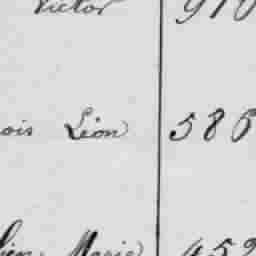 Victor 910
ois Léon 586
lien Marie 452